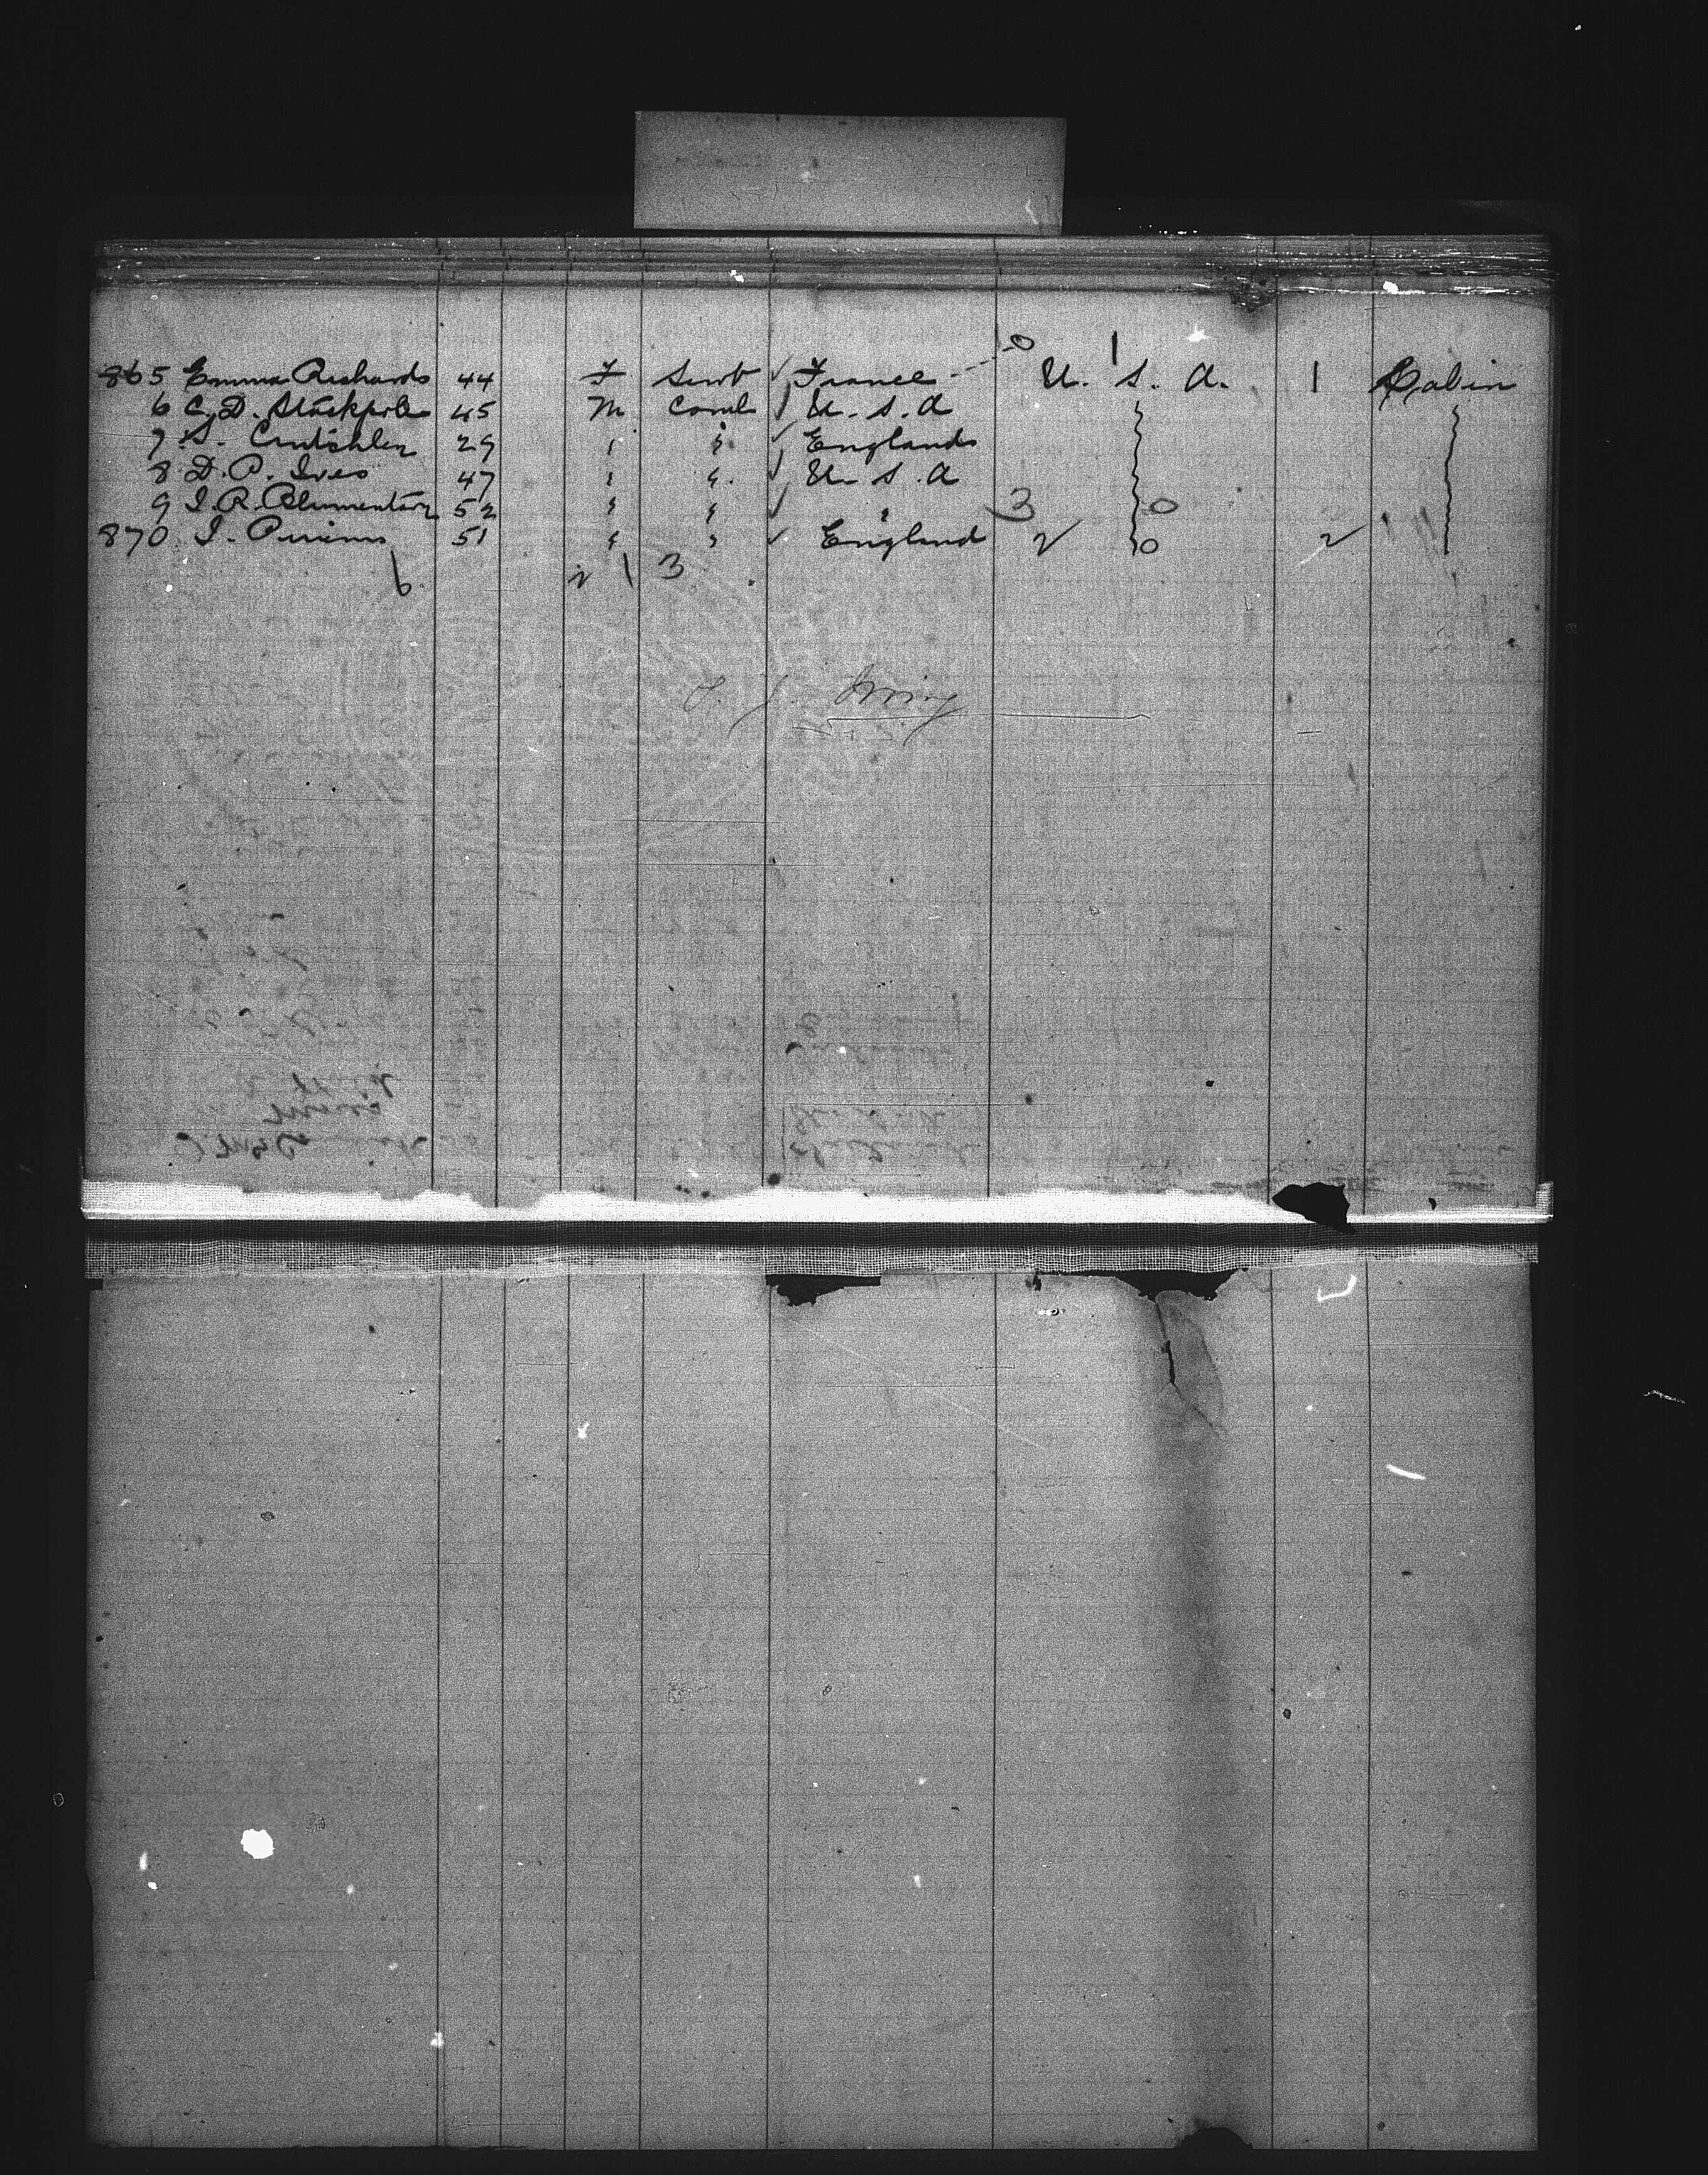 865 Emma Richards 44 F Servt ✓ France 0 U. S. A. 1 1 Cabin
6 C. D. Stackpole 45 M Coml ✓ U. S. A
7 S. 29 " " ✓ England
8 D. P. Ives 47 " " ✓ U. S. A
9 I. R. 52 " " ✓ " 3 0
870 I. 51 " " ✓ England 2 0 2
6 2 1 3
T. J. Irving